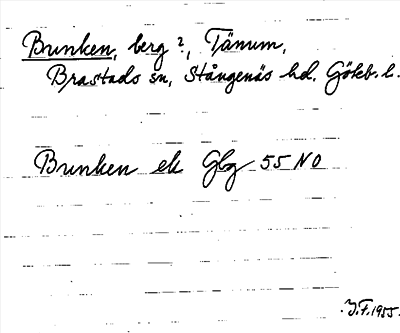 Bunken, berg?, Tänum,
Brastads sn, Stångenäs hd. Göteb. l.
Bunken ek Gbg 55 NO
J.F. 1955.